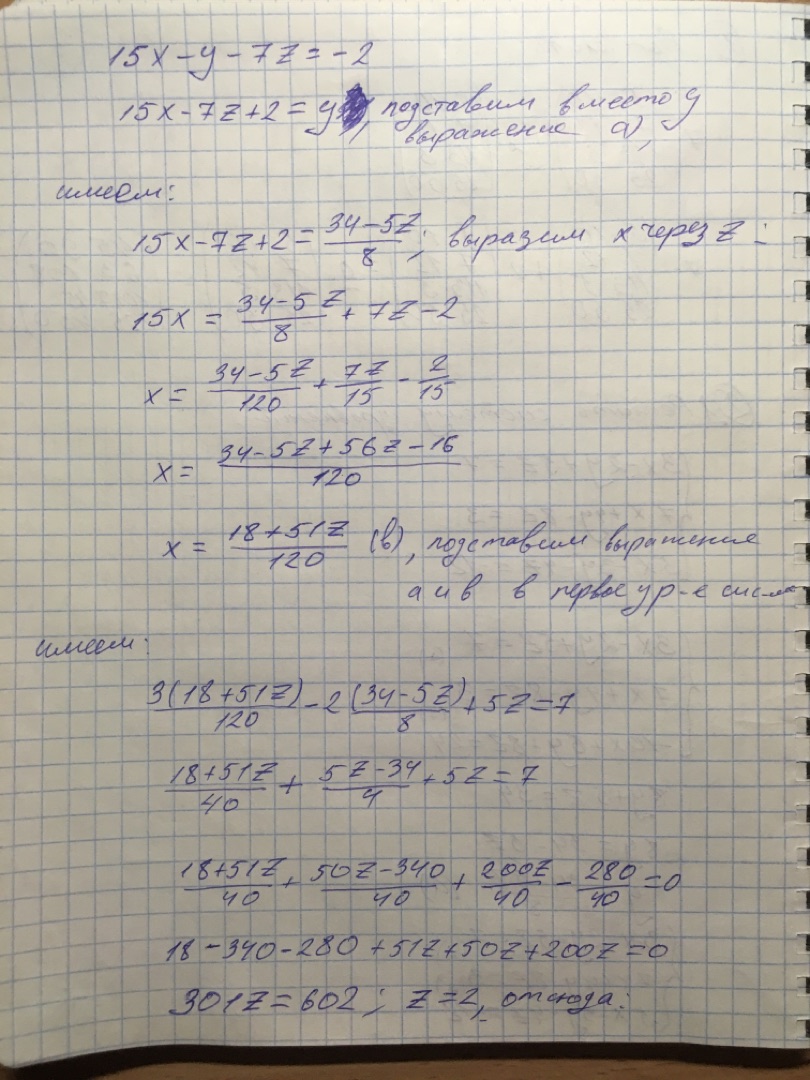 15x - y - 7z = -2
15x - 7z + 2 = y, подставим вместо y
выражение а),
имеем:
15x - 7z + 2 = (34-5z)/8; выразим x через z:
15x = (34-5z)/8 + 7z - 2
x = (34-5z)/120 + 7z/15 - 2/15
x = (34-5z+56z-16)/120
x = (18+51z)/120 (в), подставим выражение
а и в в первое ур-е
имеем:
3(18+51z)/120 - 2(34-5z)/8 + 5z = 7
(18+51z)/40 + (5z-34)/4 + 5z = 7
(18+51z)/40 + (50z-340)/40 + 200z/40 - 280/40 = 0
18 - 340 - 280 + 51z + 50z + 200z = 0
301z = 602; z = 2, отсюда: